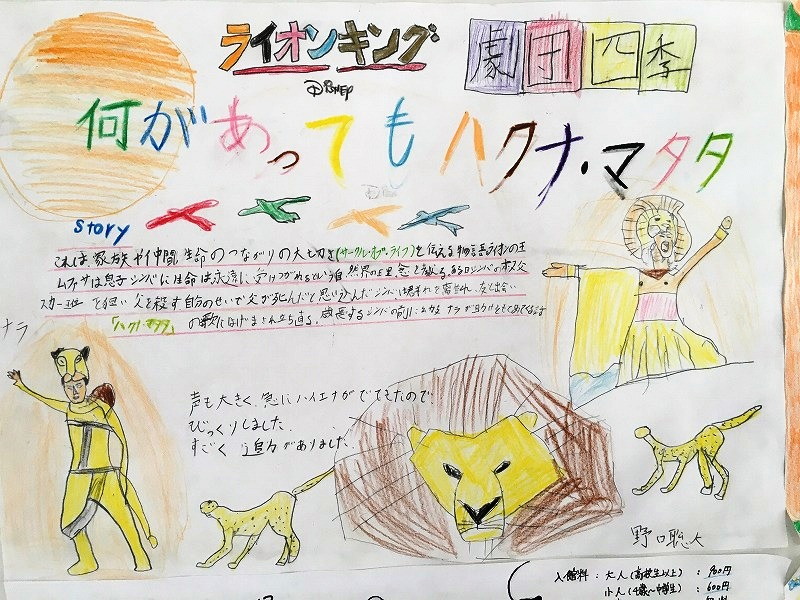 ライオンキング
劇団四季
Disney
何があっても ハクナ・マタタ
story
これは家族や仲間、生命のつながりの大切さ(サークル・オブ・ライフ)を伝える物語ライオンの王
ムファサは息子シンバに生命は永遠に受けつがれるという自然界の理念を教える。あるひシンバのおじ
スカーが王を狙い父を殺す自分のせいで父が死んだと思い込んだシンバは
「ハクナ・マタタ」の歌にはげまされ立ち直る。成長するシンバの前に
ナラ
声も大きく、急にハイエナがでてきたので
びっくりしました。
すごく迫力がありました。
野口聡大
入館料:大人(高校生以上):900円
小人(4歳~中学生):600円